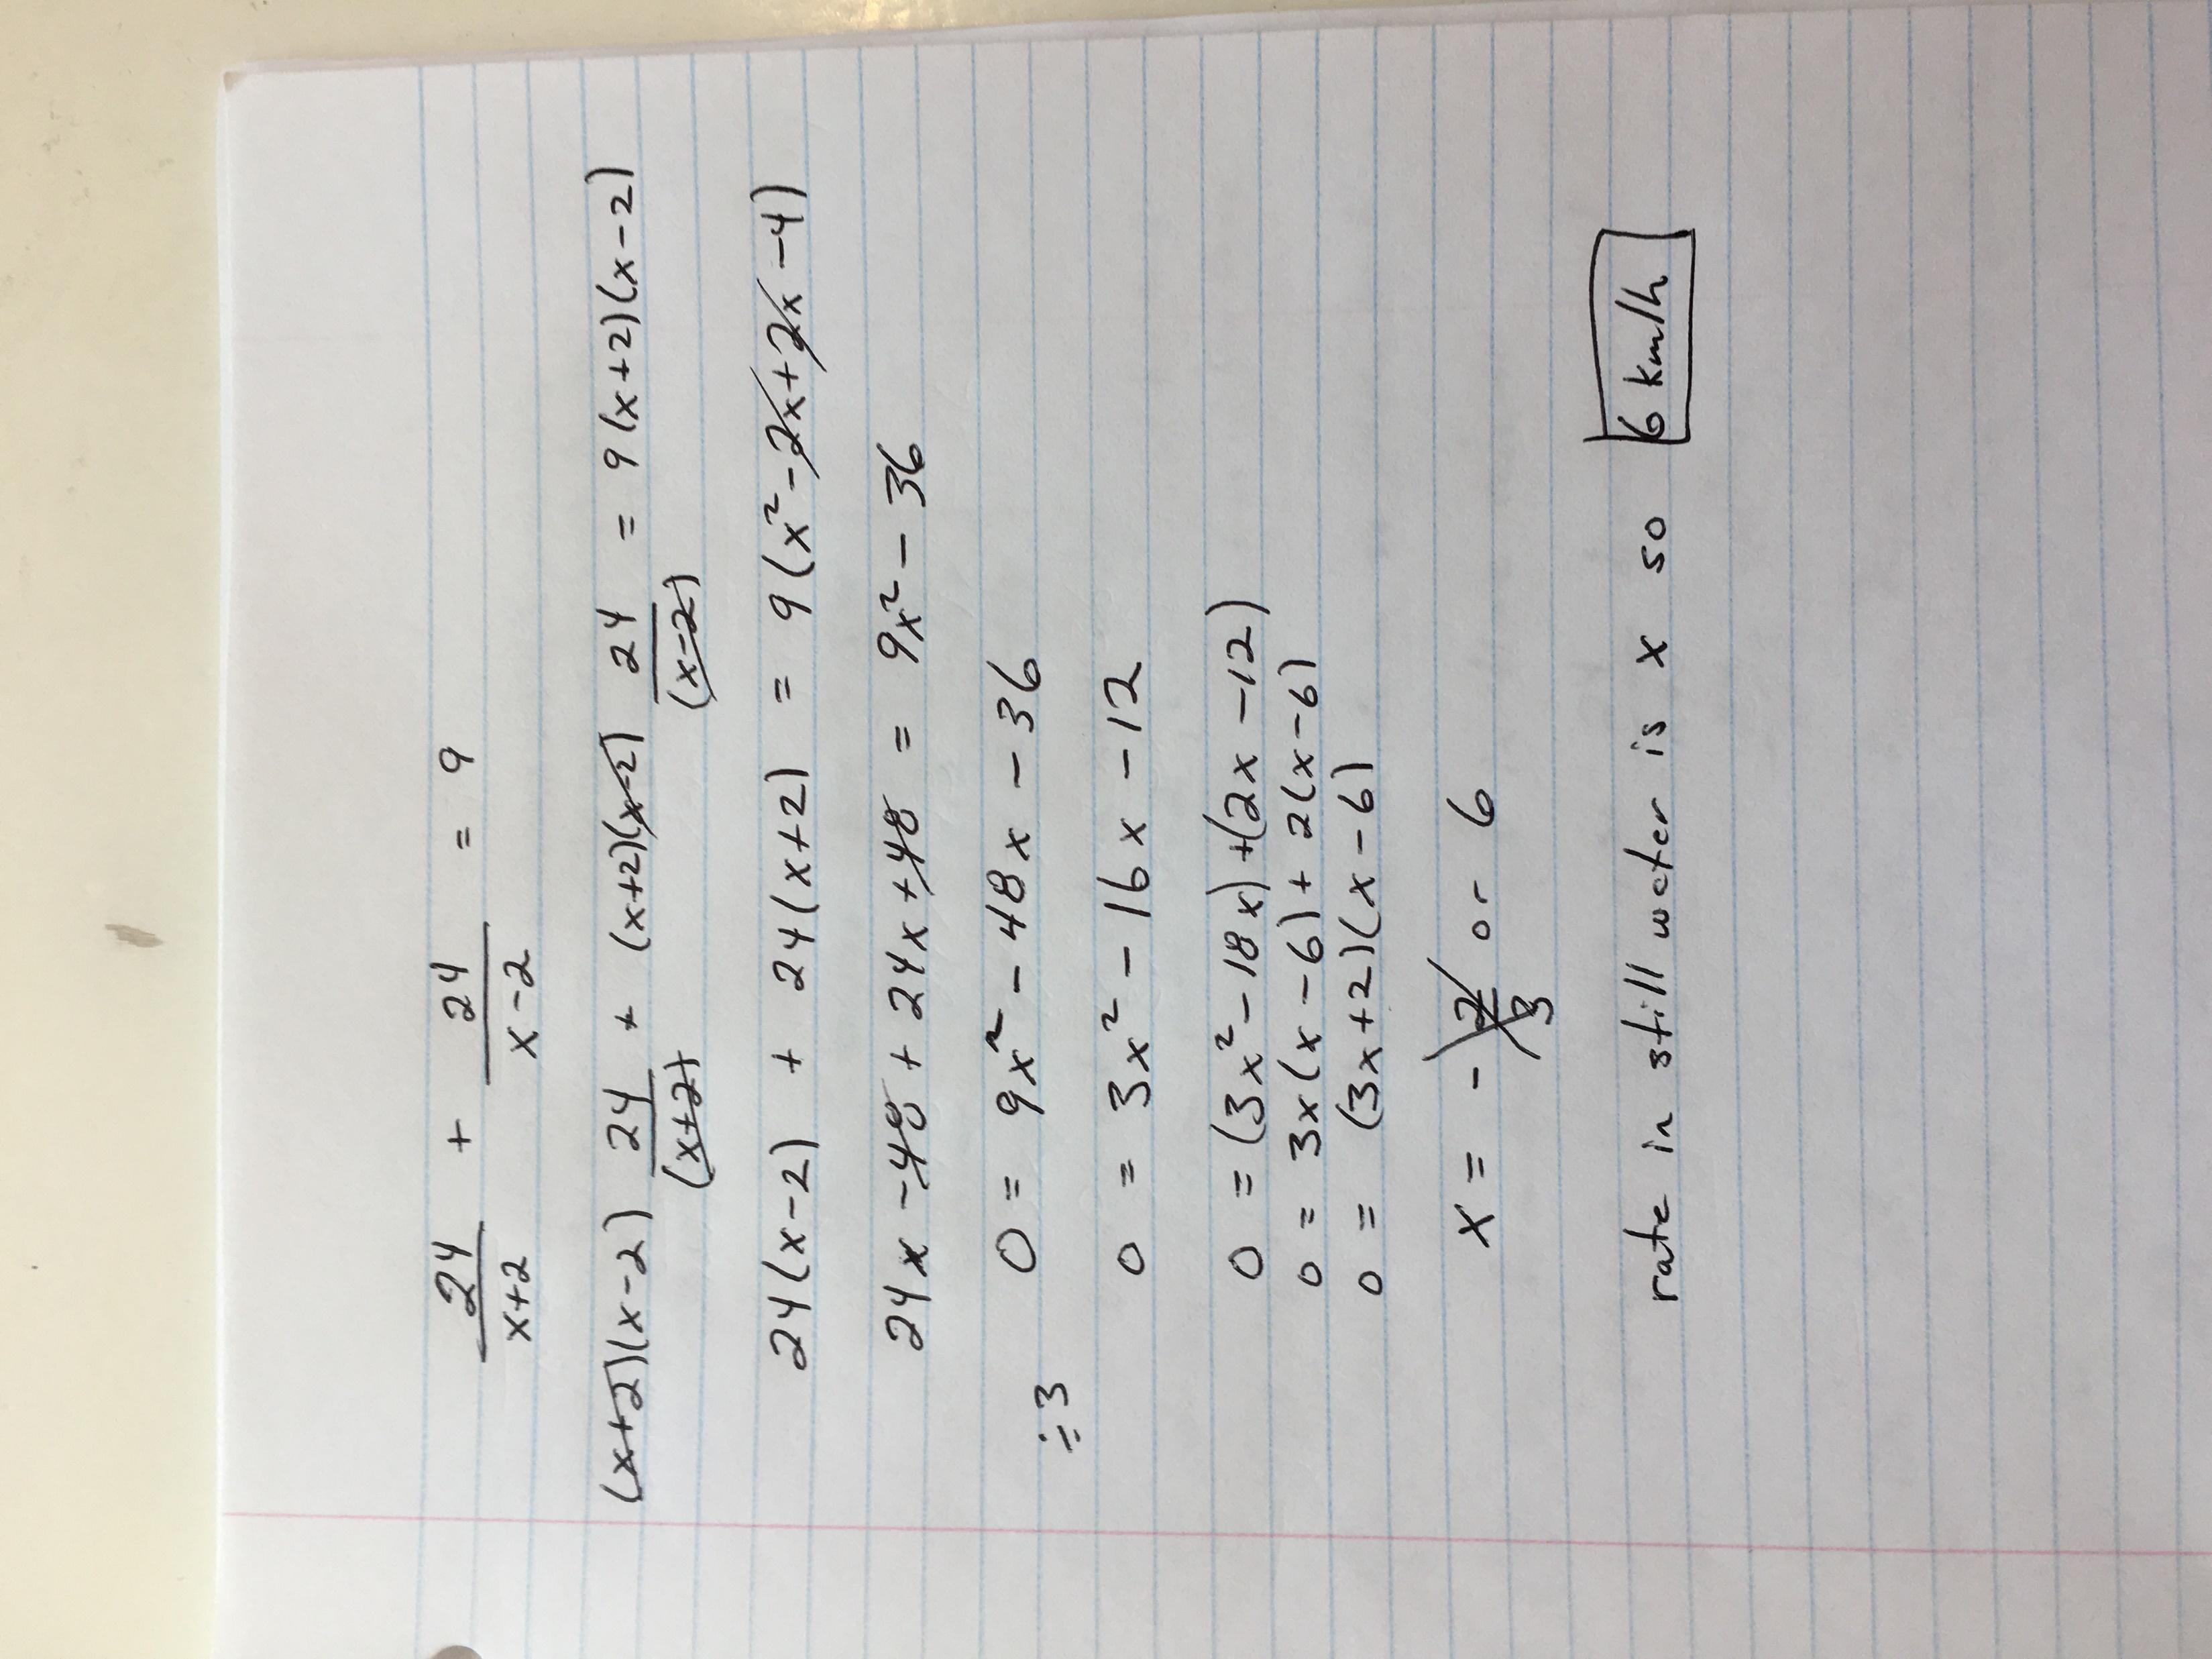 24/x+2 + 24/x-2 = 9
(x+2)(x-2) 24/(x+2) + (x+2)(x-2) 24/(x-2) = 9(x+2)(x-2)
24(x-2) + 24(x+2) = 9(x²-2x+2x-4)
24x-48+24x+48 = 9x²-36
0 = 9x²-48x-36
÷3
0 = 3x²-16x-12
0 = (3x²-18x)+(2x-12)
0 = 3x(x-6)+2(x-6)
0 = (3x+2)(x-6)
x = -2/3 or 6
rate in still water is x so 6 km/h